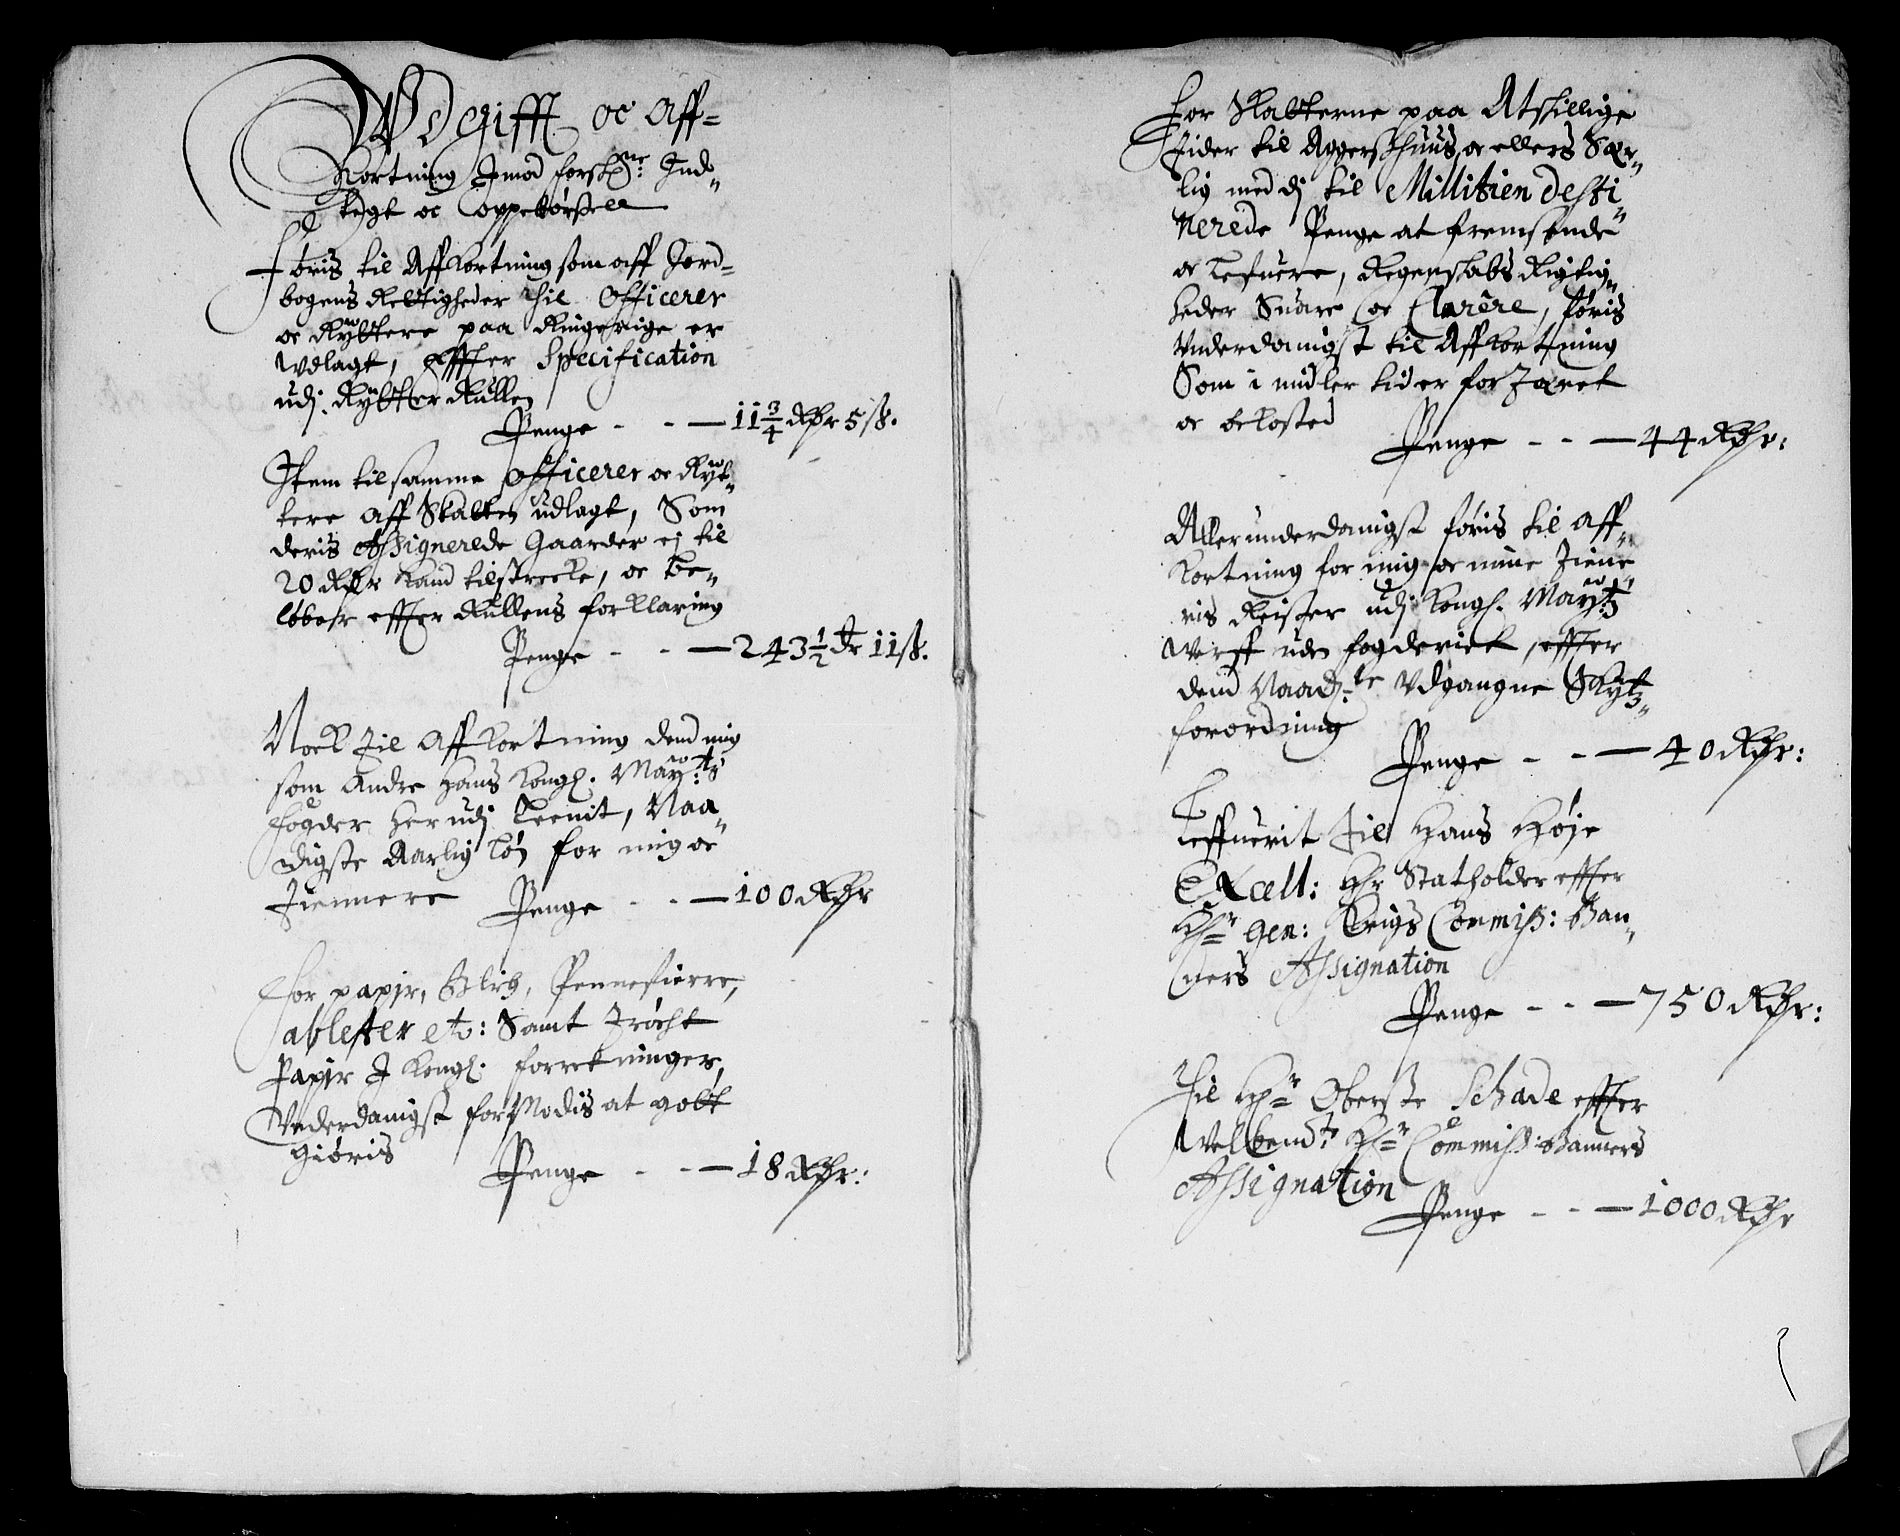 Wdgifft oc Aff-
Kortning Imod forschne: Ind„
tegt oc Oppebørßell
Føris til Affkortning som aff Jord-
bogens Rettigheder til Officerer
oc Rÿttere paa Ringerige er
Wdlagt, effter Specification
udj Rÿtter Rullen
Penge - - — 11 3/4 Rdr 5 ß.
Item til samme Officerer oc Rÿt„
tere aff Skatten udlagt, Som
deris Assignerede Gaarder ej til
20 Rdr kand tilstrecke, oc be„
løber effter Rullens forklaring
Penge - - — 243 1/2 dr 11 ß.
Nock til Affkortning dend mig
som Andre Hans Kongl. Maÿ:ts
fogder her udj Leenit, Naa„
digste Aarlig Løn for mig oc
Tiennere Penge - - — 100 Rdr
For papir, Blech, Pennefierre,
etc: Samt Trøcht
Papir I Kongl. forretninger,
Underdanigst formodis at gott
giøris Penge - - — 18 Rdr:
For Skatterne paa Atskillige
Tider til Aggershuus, oc ellers Sær„
lig med dj til Millitien desti„
nerede Penge at fremsende
oc Lefuere, Regenskabs Rigtig„
heder Suare oc Clarêre, føris
Underdanigst til Affkortning
Som i midler tid er fortæret
oc bekosted
Penge - - — 44 Rdr:
Allerunderdanigst føris til Aff„
kortning for mig oc mine Tiene
ris Reiser udj Kongl. Maÿ:tz
Werff uden fogderiet, effter
dend Naad:te Udgangne Skÿtz„
forordning
Penge - - — 40 Rdr:
Leffuerit til Hans Høje
Excell: Hr Statholder effter
Hr: Gen: Krigs Commiß: Ban„
ners Assignation
Penge - - — 750 Rdr:
Til Hr: Oberste Schade effter
Welbemt: Hr: Commiß: Banners
Assignation
Penge - - — 1000 Rdr